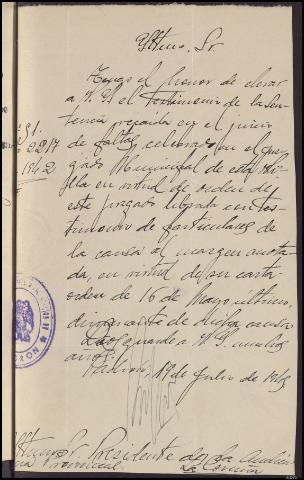 Yltmo. Sr.
Tengo el honor de elevar
a V. Y el testimonio de la Sen-
tencia recaida en el juicio
de faltas, celebrado en el Juz-
gado Municipal de esta Vi-
lla en virtud de orden de
este Juzgado librada con tes-
timonio de particulares de
la causa al margen anota-
da, en virtud de su carta-
orden de 16 de Mayo último,
dimanante de dicha causa
Dios guarde a V. Y. muchos
años.
Padrón, 19 de Julio de 1943
Yltmo Sr. Presidente de la Audien-
cia Provincial. La Coruña
91.
2217
1942